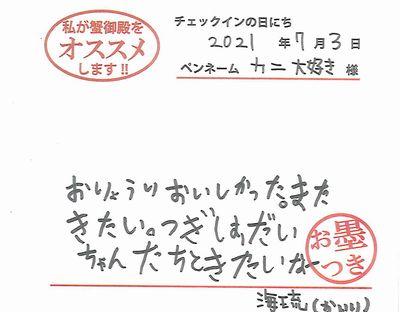 私が蟹御殿を
オススメ
します!!
チェックインの日にち
2021 年 7 月 3 日
ペンネーム カニ大好き 様
おりょうりおいしかった。また
きたい。つぎしょうだい
ちゃんたちときたいなー
お墨
つき
海琉(かいり)